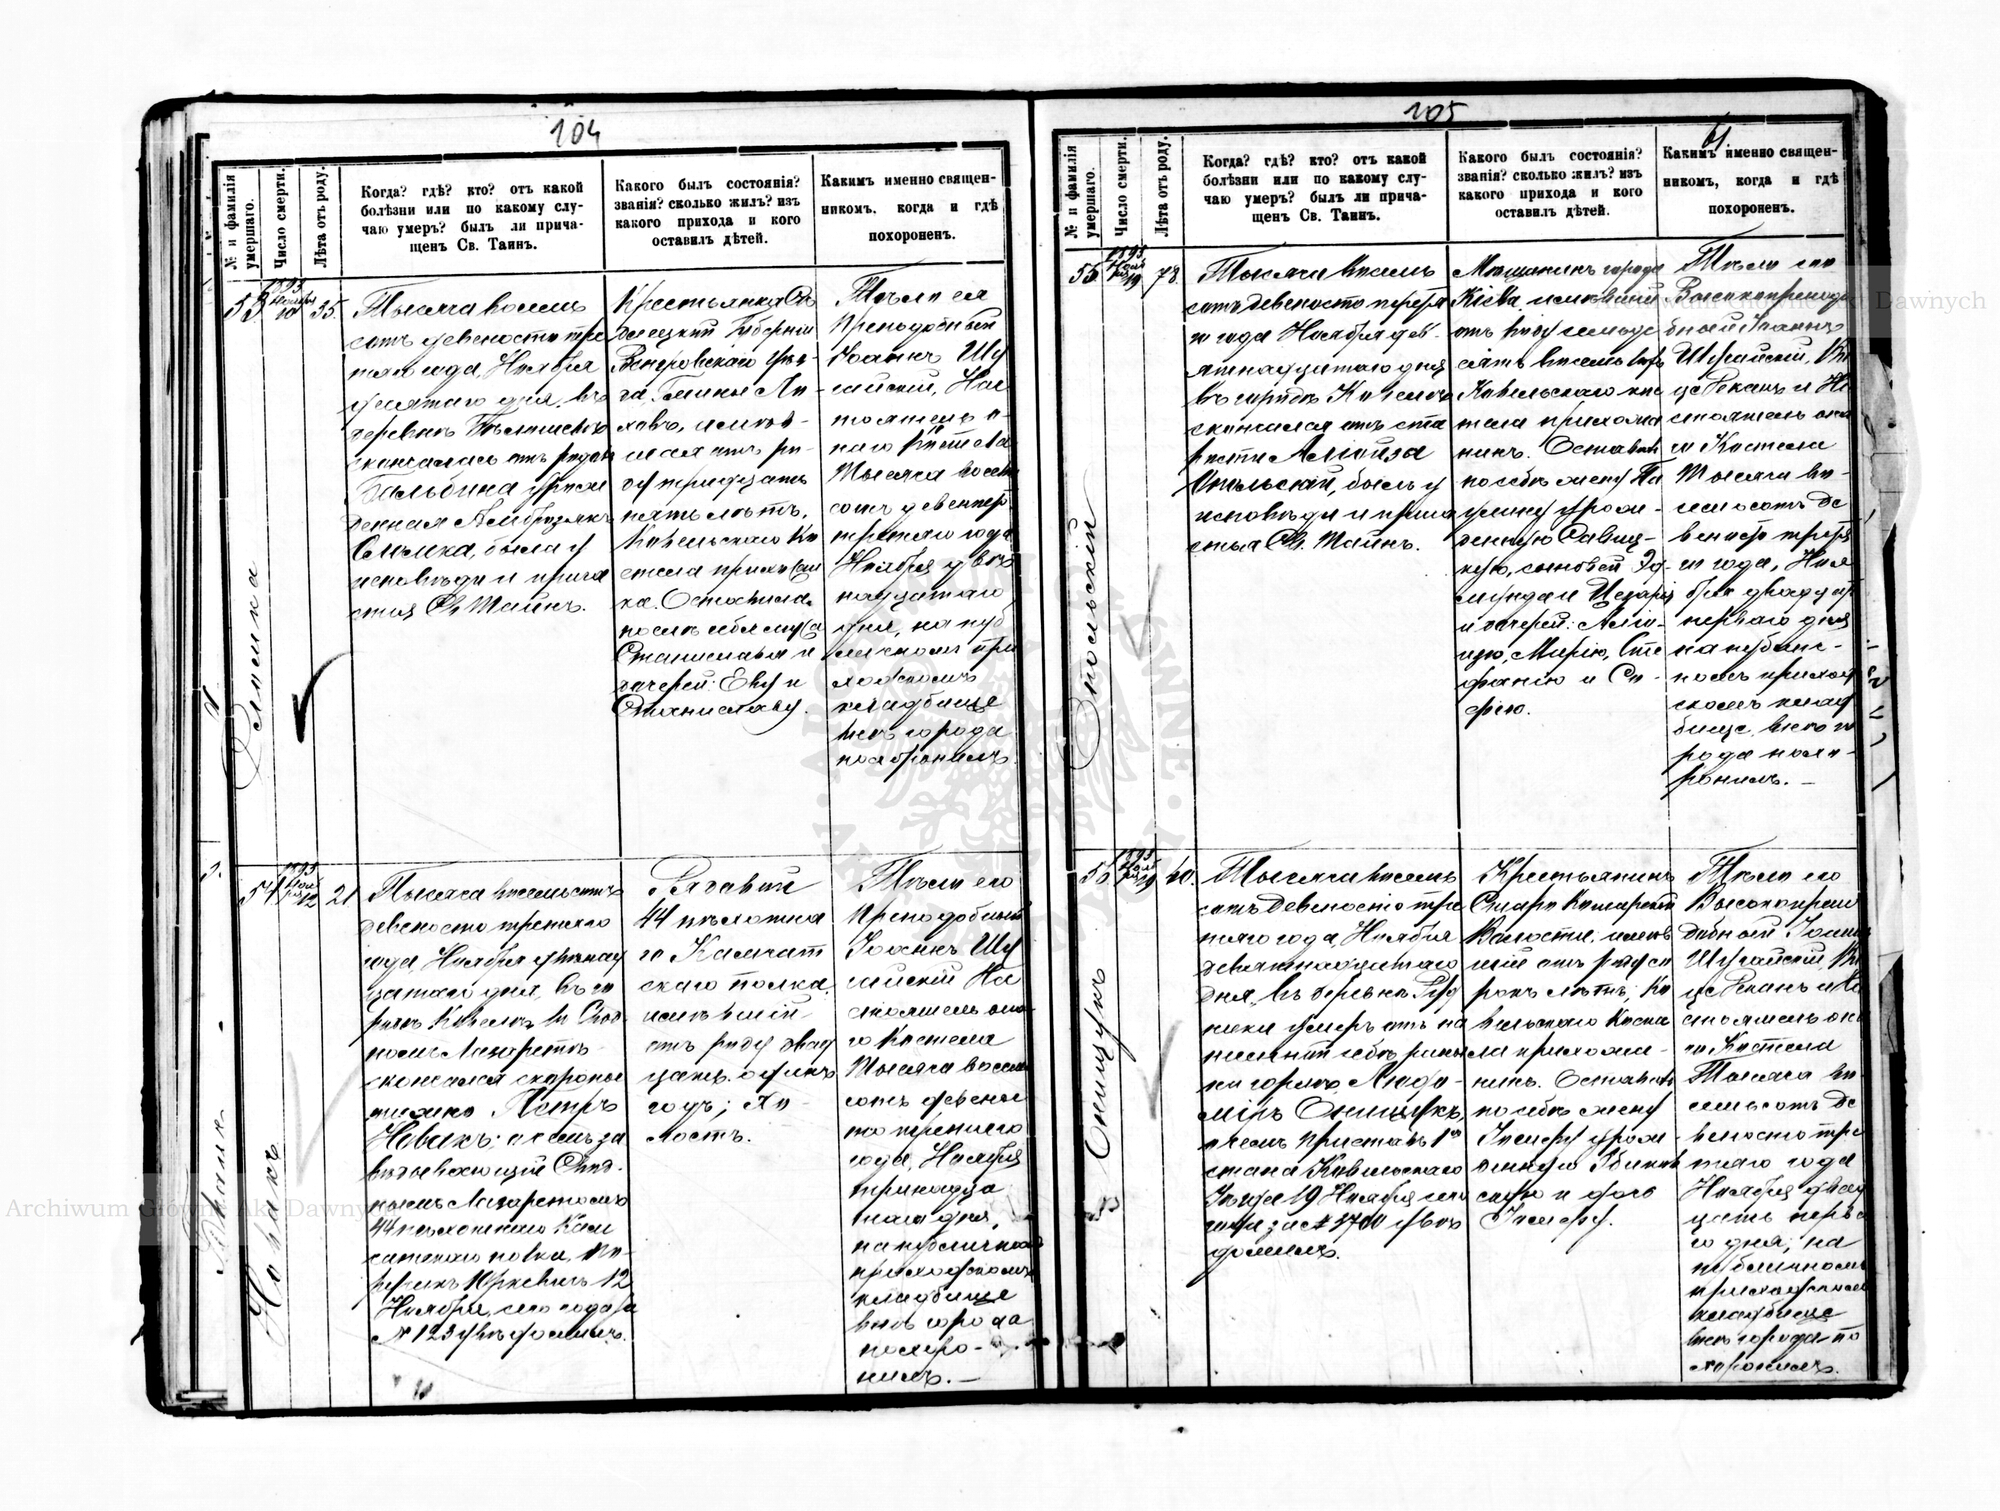 104
№ и фамилія умершаго.
Число смерти.
Лѣта отъ роду.
Когда? гдѣ? кто? отъ какой
болѣзни или по какому слу-
чаю умеръ? былъ ли прича-
щенъ Св. Таинъ.
Какого былъ состоянія?
званія? сколько жилъ? изъ
какого прихода и кого
оставилъ дѣтей.
Какимъ именно священ-
никомъ, когда и гдѣ
похороненъ.
53
1893
Ноября
10
35.
Тысяча восемь
сотъ девяносто тре
тяго года, Ноября
десятаго дня, въ
деревнѣ
скончалась отъ родовъ
Бальбина урож
денная Амброзякъ
Олышка, была у
исповѣди и прича
стія Св. Таинъ.
Крестьянка Сѣ
длецкой Губерніи
Венгровскаго уѣз-
да, Гмины Ля-
ховъ, имѣв-
шая отъ ро-
ду тридцать
пять лѣтъ,
Ковельскаго Ко
стела прихожан
ка. Оставила
послѣ себя мужа
Станислава и
дочерей: Еву и
Станиславу.
Тѣло ея
Преподобный
Іоаннъ Шу
майскій, Нас
тоятель о-
наго Костела
Тысяча восемь
сотъ девяност
третяго года
Ноября двѣ
надцатаго
дня, на пуб
личномъ при
ходскомъ
кладбище
внѣ города
похоронилъ.
54
1893
Ноя
бря
12
21
Новакъ
Тысяча восемьсотъ
девяносто третяго
года Ноября двѣнад
цатаго дня, въ го
родѣ Ковелѣ, въ Свод
номъ Лазаретѣ
скончался скоропос
тижно Петръ
Новакъ; о чемъ за
вѣдывающій Свод-
нымъ Лазаретомъ
44 пѣхотнаго Кам
чатскаго полка, По-
ручикъ Юркевичъ 12
Ноября, сего года за
№ 123 увѣдомилъ.
Рядовой
44 пѣхотна
го Камчат
скаго полка,
имѣвшій
отъ роду двад
цать одинъ
годъ; Хо-
лостъ.
Тѣло его
Преподобный
Іоаннъ Шу
майскій На
стоятель она-
го Костела
Тысяча восемь
сотъ девянос
то третяго
года, Ноября
тринадца
таго дня,
на публичномъ
приходскомъ
кладбище
внѣ города
похоро-
нилъ. —
105
61
№ и фамилія умершаго.
Число смерти.
Лѣта отъ роду.
Когда? гдѣ? кто? отъ какой
болѣзни или по какому слу-
чаю умеръ? былъ ли прича-
щенъ Св. Таинъ.
Какого былъ состоянія?
званія? сколько жилъ? изъ
какого прихода и кого
оставилъ дѣтей.
Какимъ именно священ-
никомъ, когда и гдѣ
похороненъ.
55
1893
Ноя
бря
19
78.
Опольскій
Тысяча восемь
сотъ девяносто третя
го года Ноября дев-
ятнадцатаго дня
въ городѣ Ковелѣ
скончался отъ ста
рости Алойза
Опольскій, былъ у
исповѣди и прича
стія Св. Таинъ.
Мѣщанинъ города
Кіева, имѣвшій
отъ роду семьде
сятъ восемь лѣтъ
Ковельскаго кос
тела прихожа
нинъ. Оставилъ
по себѣ жену Па
улину урож-
денную Савиц-
кую, сыновей Эд-
мунда и Цезарія
и дочерей:
Марію, Сте
фанію и Со-
фію.
Тѣло его
Высокопреподо
бный Іоаннъ
Шумайскій, Ви
це Деканъ и На
стоятель она
го Костела
Тысяча во-
семьсотъ де
вяносто третя
го года, Ноя
бря двадцать
перваго дня
на публич-
номъ приход
скомъ клад
бище, внѣ го
рода похо-
ронилъ. —
56
1893
Ноя
бря
19
40.
Онищукъ
Тысяча восемь
сотъ девяносто тре
тяго года Ноября
девятнадцатаго
дня, въ деревнѣ Руд
ники умеръ отъ на
несенной себѣ раны
на горлѣ, Людо-
міръ Онищукъ,
о чемъ Приставъ 1го
стана Ковельскаго
Уѣзда 19 Ноября сего
года за № 3700 увѣ
домилъ.
Крестьянинъ
Старо Кошарской
Волости, имѣв
шій отъ роду со
рокъ лѣтъ; Ко
вельскаго Косте
ла прихожа-
нинъ. Оставилъ
по себѣ жену
Іозефу урож
денную
и дочь
Іозефу.
Тѣло его
Высокопрепо
добный Іоаннъ
Шумайскій, Ви
це Деканъ и На
стоятель она
го Костела
Тысяча во
семьсотъ де
вяносто тре
тяго года
Ноября двад
цать перва
го дня, на
публичномъ
приходскомъ
кладбище
внѣ города по
хоронилъ.
Archiwum Główne Akt Dawnych